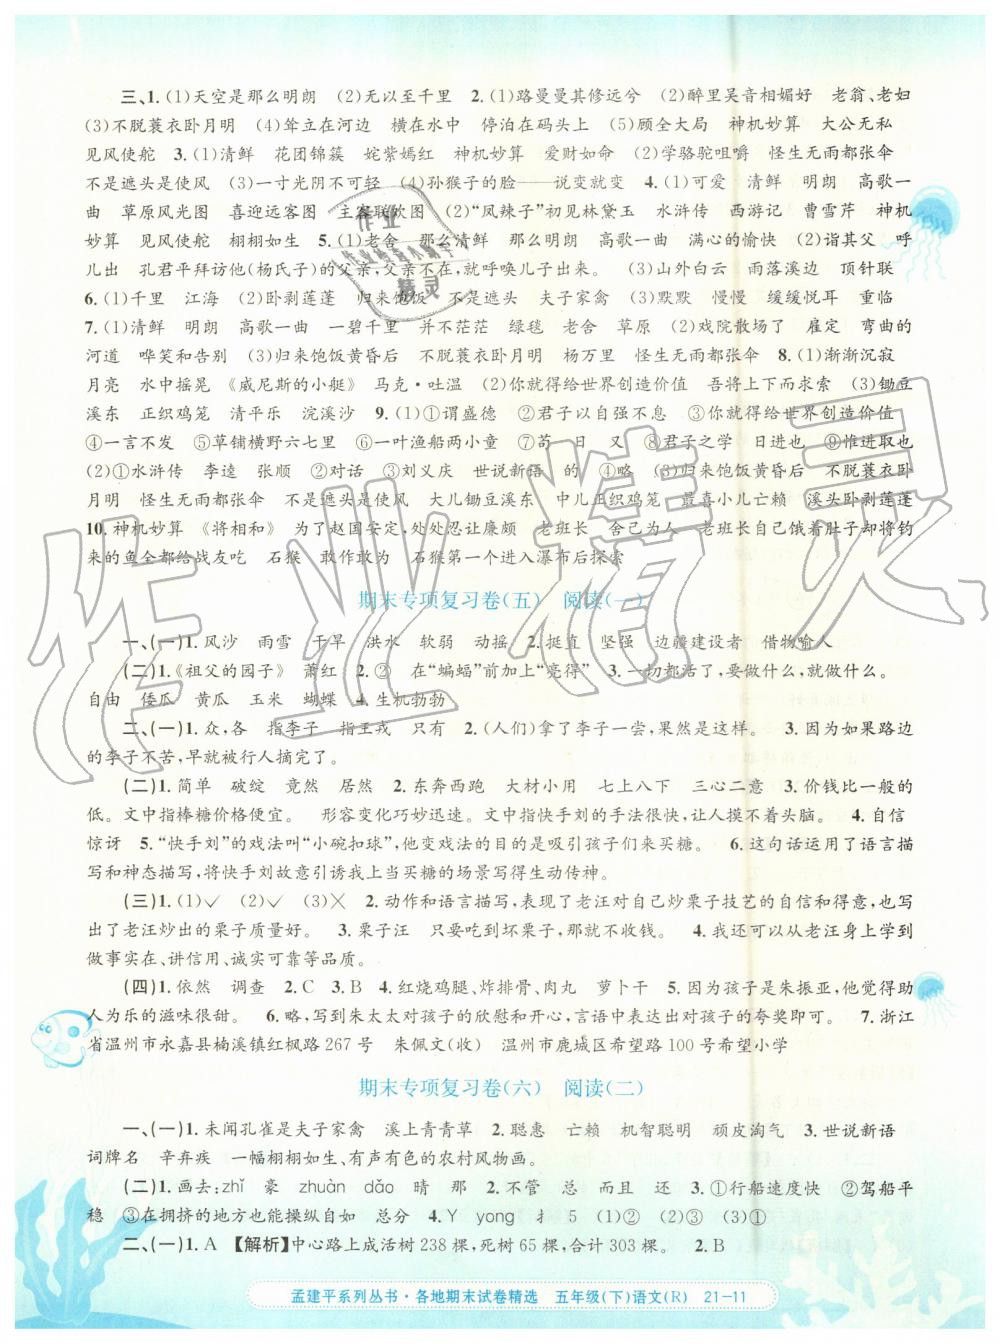 三、1. (1)天空是那么明朗　(2)无以至千里　2. (1)路曼曼其修远兮　(2)醉里吴音相媚好　老翁、老妇
(3)不脱蓑衣卧月明　(4)耸立在河边　横在水中　停泊在码头上　(5)顾全大局　神机妙算　大公无私
见风使舵　3. (1)清鲜　花团锦簇　姹紫嫣红　神机妙算　爱财如命　(2)学骆驼咀嚼　怪生无雨都张伞
不是遮头是使风　(3)一寸光阴不可轻　(4)孙猴子的脸——说变就变　4. (1)可爱　清鲜　明朗　高歌一
曲　草原风光图　喜迎远客图　主客联欢图　(2)“凤辣子”初见林黛玉　水浒传　西游记　曹雪芹　神机
妙算　见风使舵　栩栩如生　5. (1)老舍　那么清鲜　那么明朗　高歌一曲　满心的愉快　(2)诣其父　呼
儿出　孔君平拜访他(杨氏子)的父亲,父亲不在,就呼唤儿子出来。　(3)山外白云　雨落溪边　顶针联
6. (1)千里　江海　(2)卧剥莲蓬　归来饱饭　不是遮头　夫子家禽　(3)默默　慢慢　缓缓悦耳　重临
7. (1)清鲜　明朗　高歌一曲　一碧千里　并不茫茫　绿毯　老舍　草原　(2)戏院散场了　雇定　弯曲的
河道　哗笑和告别　(3)归来饱饭黄昏后　不脱蓑衣卧月明　杨万里　怪生无雨都张伞　8. (1)渐渐沉寂
月亮　水中摇晃　《威尼斯的小艇》　马克·吐温　(2)你就得给世界创造价值　吾将上下而求索　(3)锄豆
溪东　正织鸡笼　清平乐　浣溪沙　9. (1)①谓盛德　②君子以自强不息　③你就得给世界创造价值
④一言不发　⑤草铺横野六七里　⑥一叶渔船两小童　⑦苟　日　又　⑧君子之学　日进也　⑨惟进取也
(2)①水浒传　李逵　张顺　②对话　③刘义庆　世说新语　的　④略　(3)归来饱饭黄昏后　不脱蓑衣卧
月明　怪生无雨都张伞　不是遮头是使风　大儿锄豆溪东　中儿正织鸡笼　最喜小儿亡赖　溪头卧剥莲蓬
10. 神机妙算　《将相和》　为了赵国安定,处处忍让廉颇　老班长　舍己为人　老班长自己饿着肚子却将钓
来的鱼全都给战友吃　石猴　敢作敢为　石猴第一个进入瀑布后探索
期末专项复习卷(五)　阅读(一)
一、(一)1. 风沙　雨雪　干旱　洪水　软弱　动摇　2. 挺直　坚强　边疆建设者　借物喻人
(二)1.《祖父的园子》　萧红　2. ②　在“蝙蝠”前加上“亮得”　3. 一切都活了,要做什么,就做什么。
自由　倭瓜　黄瓜　玉米　蝴蝶　4. 生机勃勃
二、(一)1. 众,各　指李子　指王戎　只有　2. (人们)拿了李子一尝,果然是这样。　3. 因为如果路边
的李子不苦,早就被行人摘完了。
(二)1. 简单　破绽　竟然　居然　2. 东奔西跑　大材小用　七上八下　三心二意　3. 价钱比一般的
低。文中指棒糖价格便宜。　形容变化巧妙迅速。文中指快手刘的手法很快,让人摸不着头脑。　4. 自信
惊讶　5. “快手刘”的戏法叫“小碗扣球”,他变戏法的目的是吸引孩子们来买糖。　6. 这句话运用了语言描
写和神态描写,将快手刘故意引诱我上当买糖的场景写得生动传神。
(三)1. (1)✓　(2)✓　(3)✕　2. 动作和语言描写,表现了老汪对自己炒栗子技艺的自信和得意,也写
出了老汪炒出的栗子质量好。　3. 栗子汪　只要吃到坏栗子,那就不收钱。　4. 我还可以从老汪身上学到
做事实在、讲信用、诚实可靠等品质。
(四)1. 依然　调查　2. C　3. B　4. 红烧鸡腿、炸排骨、肉丸　萝卜干　5. 因为孩子是朱振亚,他觉得助
人为乐的滋味很甜。　6. 略,写到朱太太对孩子的欣慰和开心,言语中表达出对孩子的夸奖即可。　7. 浙江
省温州市永嘉县楠溪镇红枫路 267 号　朱佩文(收)　温州市鹿城区希望路 100 号希望小学
期末专项复习卷(六)　阅读(二)
一、(一)1. 未闻孔雀是夫子家禽　溪上青青草　2. 聪惠　亡赖　机智聪明　顽皮淘气　3. 世说新语
词牌名　辛弃疾　一幅栩栩如生、有声有色的农村风物画。
(二)1. 画去:zhǐ　豪　zhuàn　dǎo　晴　那　2. 不管　总　而且　还　3. ①行船速度快　②驾船平
稳　③在拥挤的地方也能操纵自如　总分　4. Y　yong　扌　5　(1)②　(2)③　(3)①
二、(一)1. A　【解析】中心路上成活树 238 棵,死树 65 棵,合计 303 棵。　2. B
孟建平系列丛书·各地期末试卷精选　五年级(下)语文(R)　21-11
作业精灵